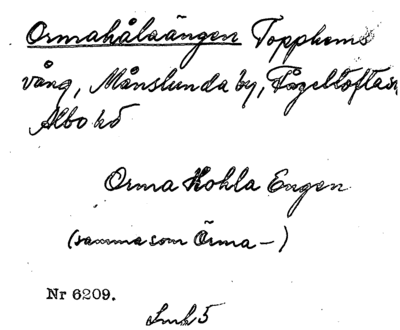 Ormahålaängen Topphems
vång, Månslunda by, Fågeltofta sn
Albo hd
Orma Hohla Engen
(samma som Örma-)
Nr 6209.